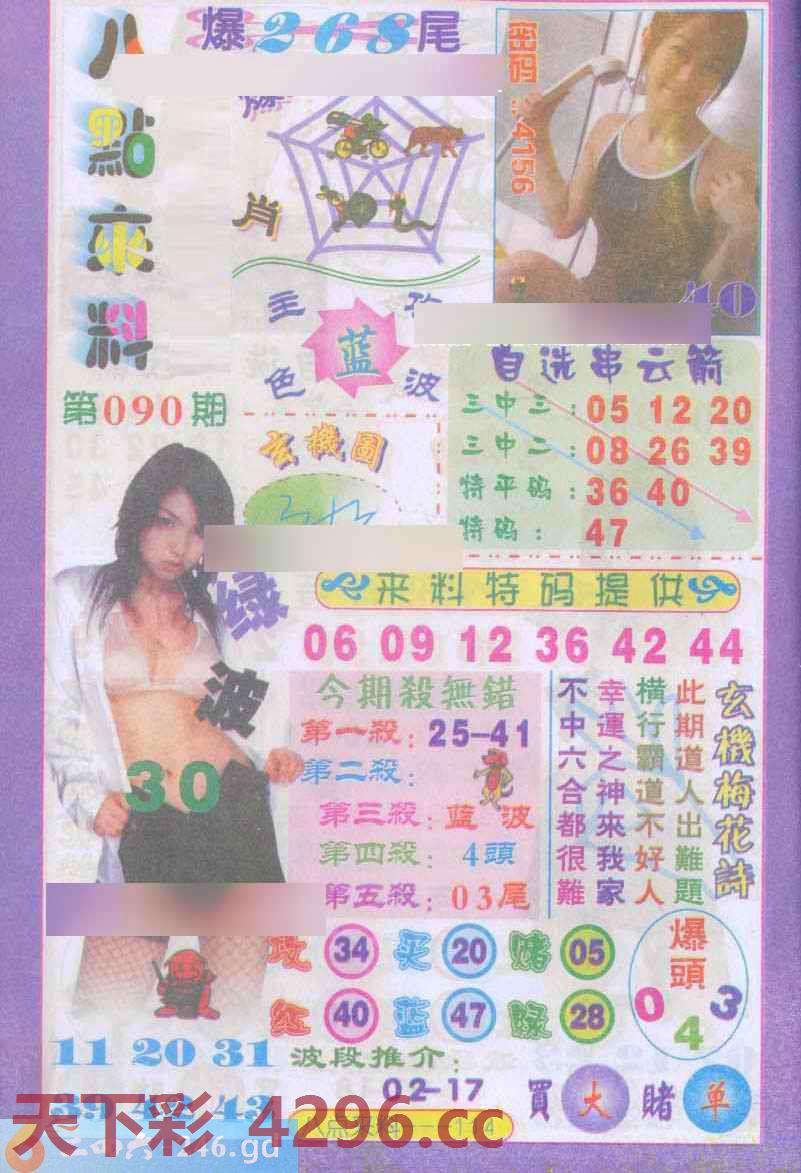 八點來料
爆268尾
爆
肖
4156
40
主
色
蓝
波
自选串云箭
三中三：05 12 20
三中二：08 26 39
特平码：36 40
特码：47
第090期
玄機圖
来料特码提供
绿
波
30
06 09 12 36 42 44
今期殺無錯
第一殺：25-41
第二殺：
第三殺：蓝波
第四殺：4頭
第五殺：03尾
玄機梅花詩
此期道人出難題
橫行霸道不好人
幸運之神來我家
不中六合都很難
攻 34 买 20 赌 05
红 40 蓝 47 绿 28
爆頭
0 4 3
11 20 31
波段推介：
02-17
買大賭单
天下彩 4296.cc
246.gd